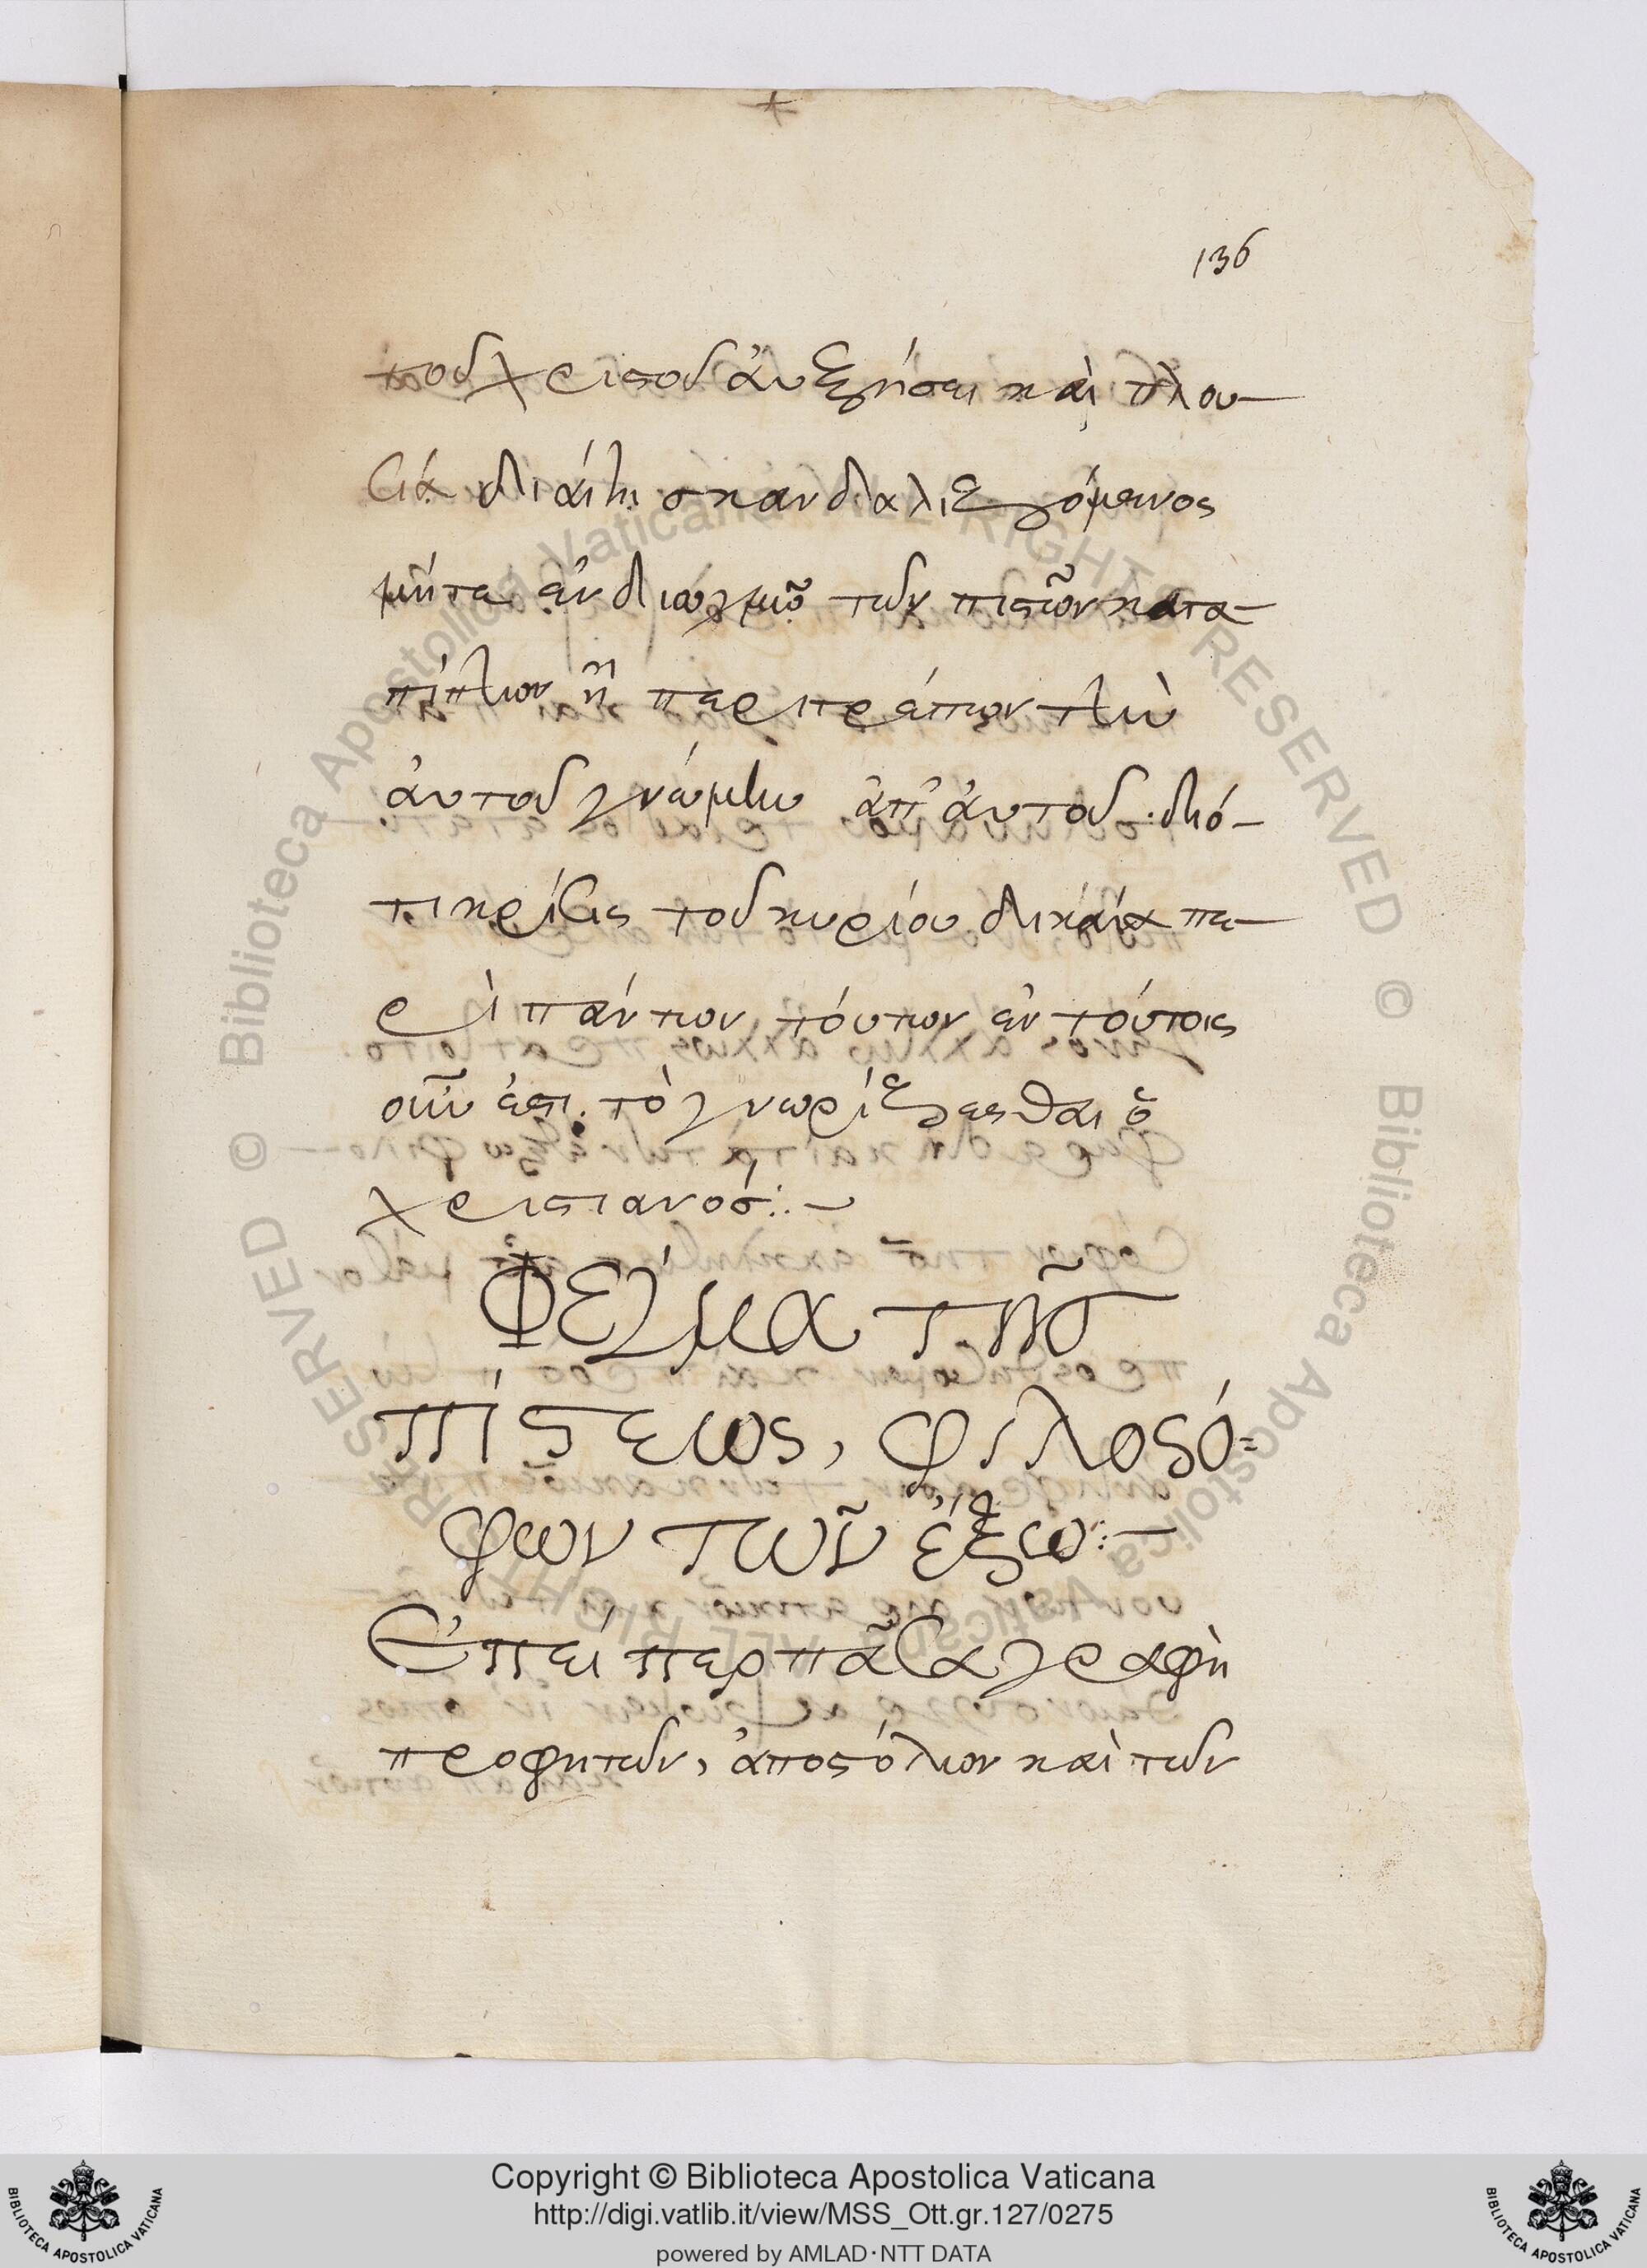 136
τοῦ χριστοῦ ἀυξήσει καὶ πλου-
σία διαίτη σκανδαλιζόμενος
μήτε ἐν διωγμῷ τῶν πιστῶν κατα-
πίπτων ἢ περιτρέπων τὴν
ἀυτοῦ γνώμην ἀπ' ἀυτοῦ. διό-
τι κρίσις τοῦ κυρίου δικαία πε-
ρὶ πάντων τόυτων ἐν τόυτοις
οὖν ἐστι τὸ γνωρίζεσθαι ὁ
χριστιανόσ:~
Φέγμα τῆσ
πίστεως, φιλοσό=
φων τῶν ἔξω:~
Ἐπείπερ πᾶσα γραφὴ
προφητῶν, ἀποστόλων καὶ τῶν
Copyright © Biblioteca Apostolica Vaticana
http://digi.vatlib.it/view/MSS_Ott.gr.127/0275
powered by AMLAD·NTT DATA
BIBLIOTECA APOSTOLICA VATICANA
BIBLIOTECA APOSTOLICA VATICANA
© Biblioteca Apostolica Vaticana ALL RIGHTS RESERVED
© Biblioteca Apostolica Vaticana ALL RIGHTS RESERVED